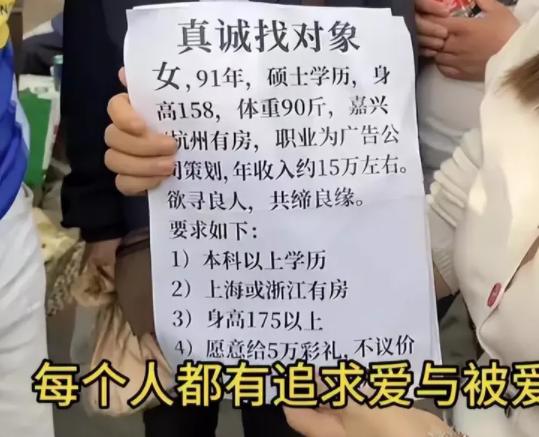 真诚找对象
女,91年,硕士学历,身
高158,体重90斤,嘉兴
杭州有房,职业为广告公
司策划,年收入约15万左右。
欲寻良人,共缔良缘。
要求如下:
1)本科以上学历
2)上海或浙江有房
3)身高175以上
4)愿意给5万彩礼,不议价
每个人都有追求爱与被爱